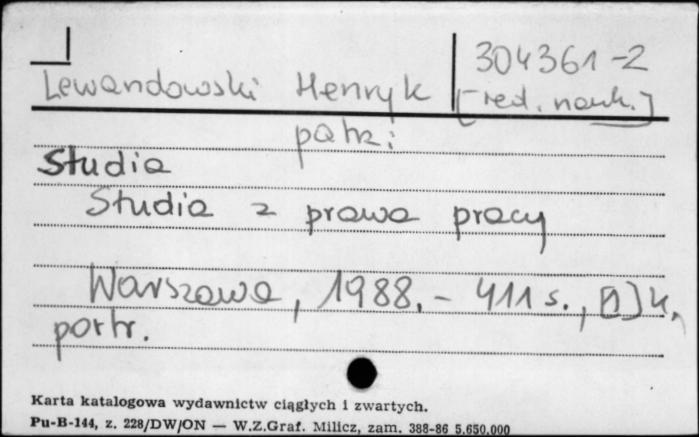 304361-2
Lewandowski Henryk [red. nauk.]
patrz:
Studia
Studia z prawa pracy
Warszawa, 1988. - 411 s., [1] k.
portr.
Karta katalogowa wydawnictw ciągłych i zwartych.
Pu-B-144, z. 228/DW/ON — W.Z.Graf. Milicz, zam. 388-86 5.650.000